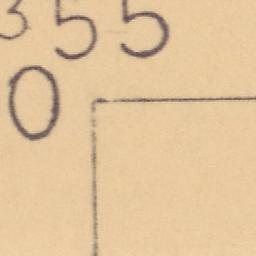 355
0